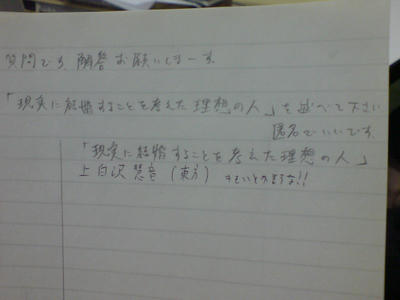 質問です 解答お願いしまーす
「現実に結婚することを考えた理想の人」を述べて下さい
匿名でいいです
「現実に結婚することを考えた理想の人」
上白沢慧音(東方)